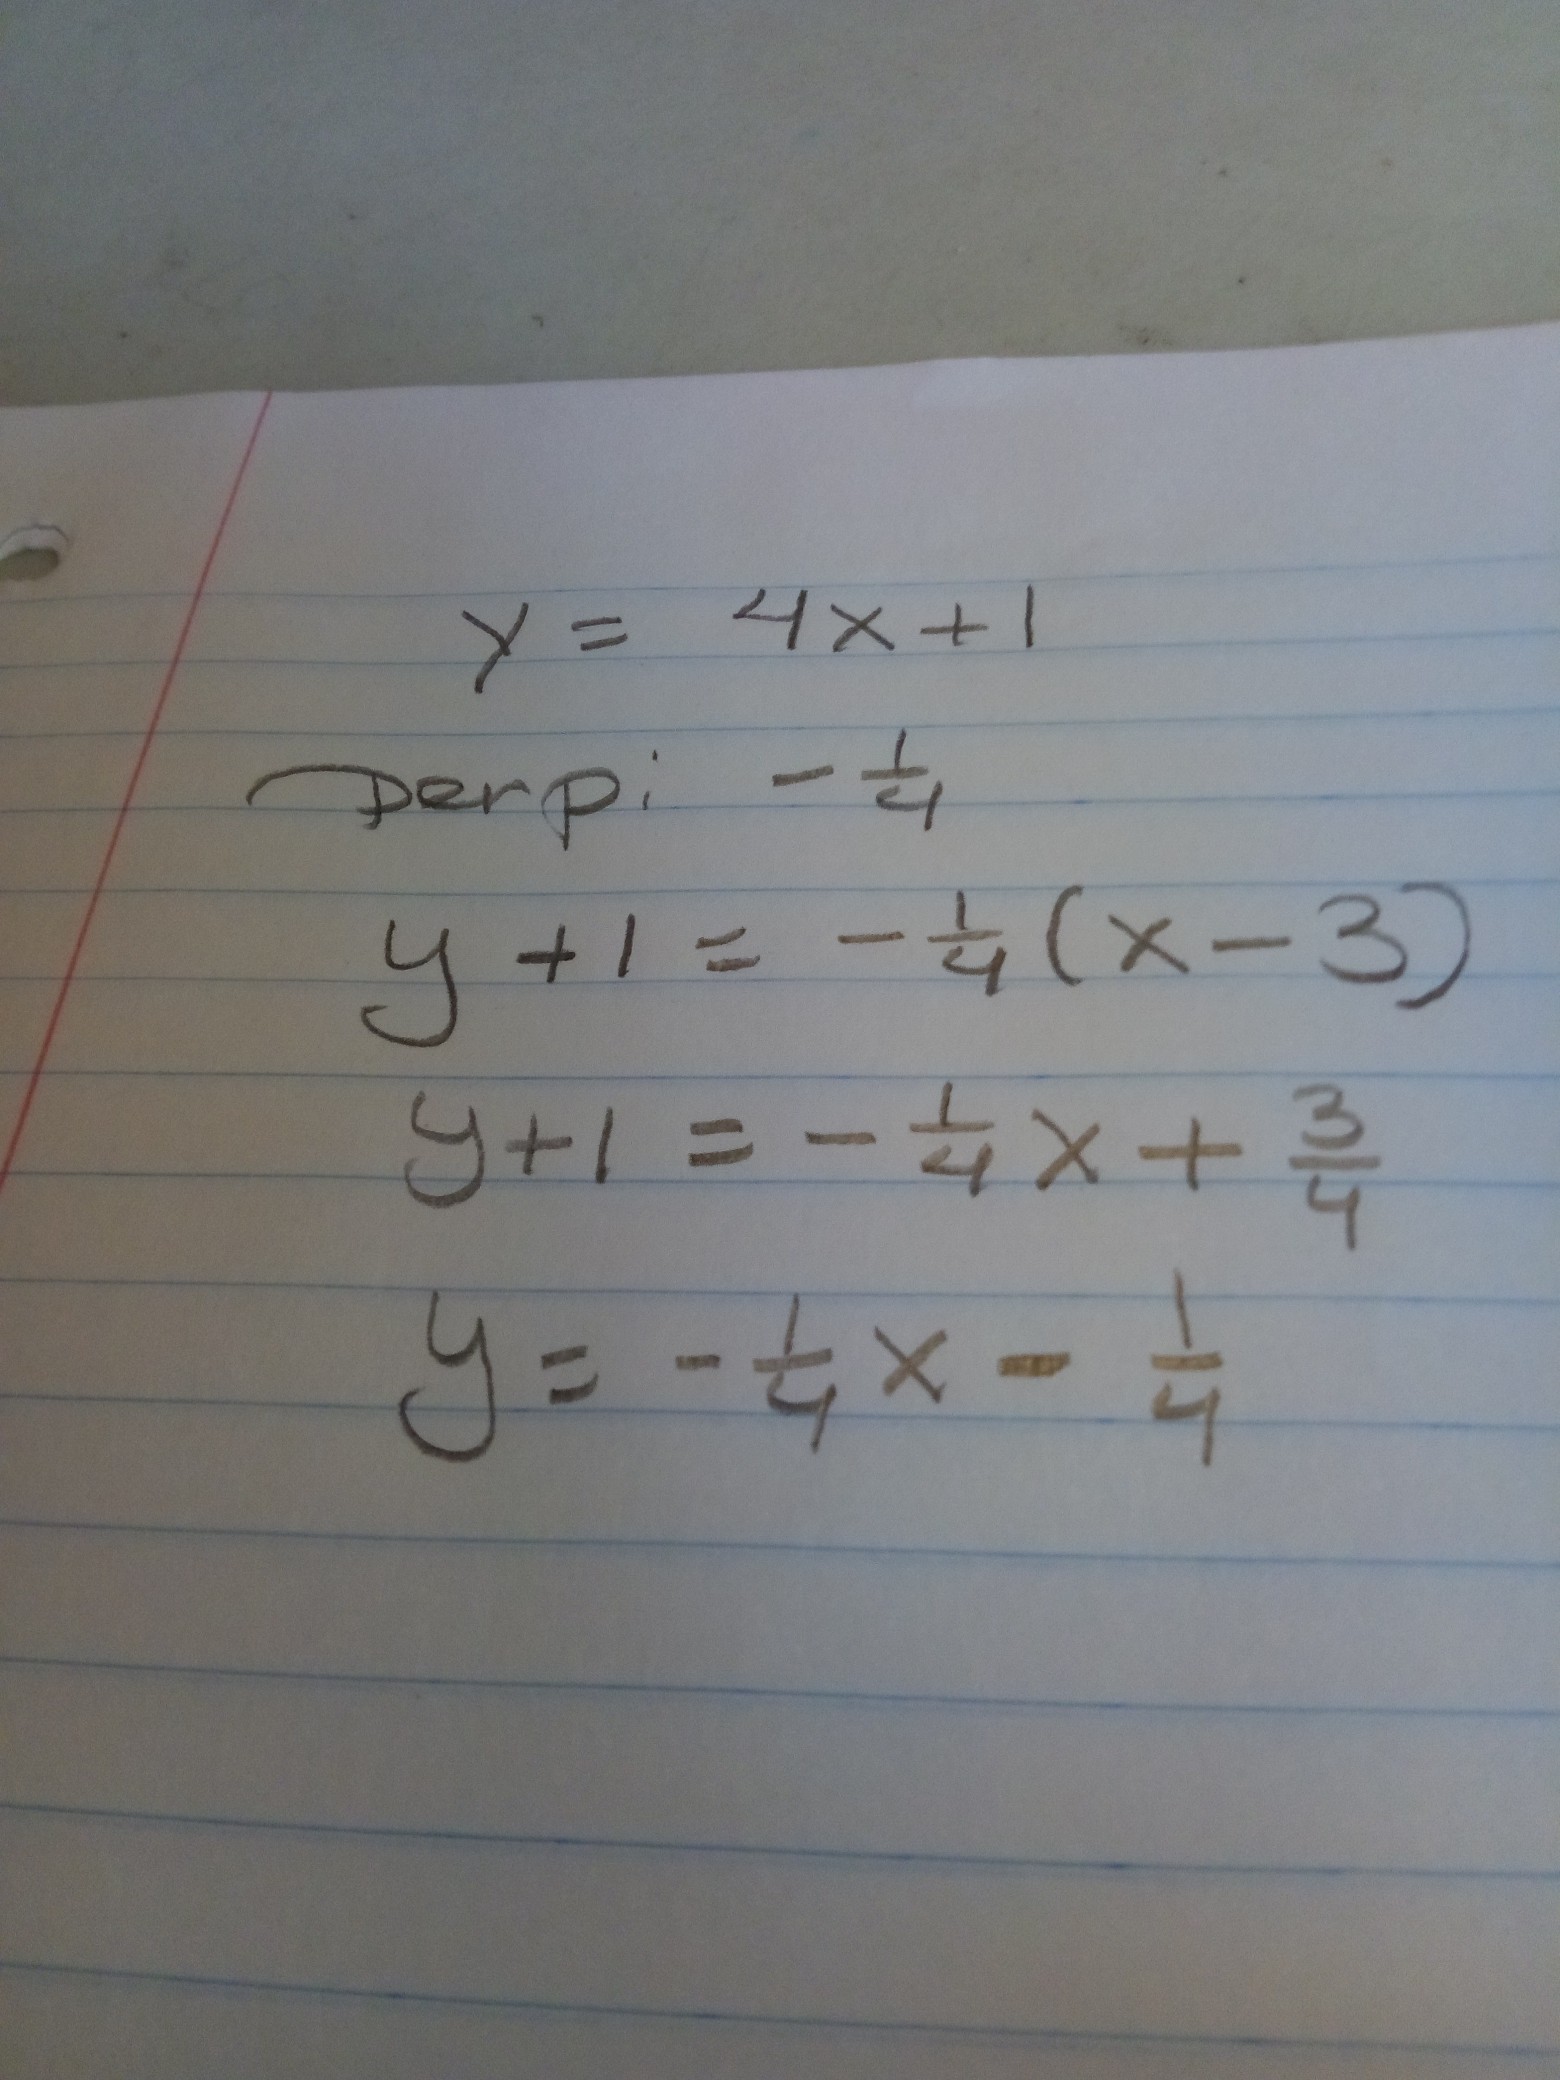 y = 4x+1
perpi -1/4
y +1 = -1/4(x-3)
y+1 = -1/4x + 3/4
y = -1/4x - 1/4